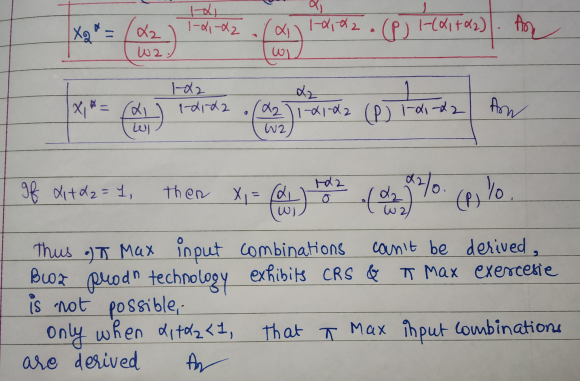 x₂* = (α₂/w₂)^((1-α₁)/(1-α₁-α₂)) · (α₁/w₁)^(α₁/(1-α₁-α₂)) · (P)^(1/(1-(α₁+α₂))). Ans
x₁* = (α₁/w₁)^((1-α₂)/(1-α₁-α₂)) · (α₂/w₂)^(α₂/(1-α₁-α₂)) (P)^(1/(1-α₁-α₂)) Ans
If α₁+α₂ = 1, then x₁ = (α₁/w₁)^((1-α₂)/0) · (α₂/w₂)^(α₂/0) · (P)^(1/0).
Thus π Max input combinations can't be derived,
Bcoz prodⁿ technology exhibits CRS & π Max exercesie
is not possible,
only when α₁+α₂<1, that π Max input combinations
are derived Ans